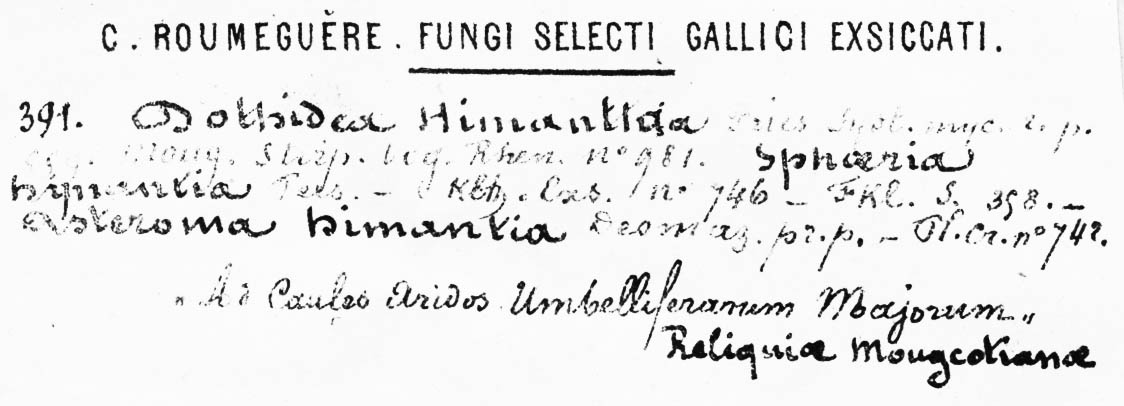 C. ROUMEGUÈRE. FUNGI SELECTI GALLICI EXSICCATI.
391. Dothidea Himantida Fries Syst. myc. 2. p.
Moug. Stirp. vog. Rhen. n° 981. Sphœria
himantia Pers. — Kbh. Exs. n° 746 — FKl. S. 358. —
Asteroma himantia Desmaz. pr. p. — Pl. Cr. n° 742.
„ Ad Caules Aridos Umbelliferarum Majorum „
Reliquiæ Mougeotianæ